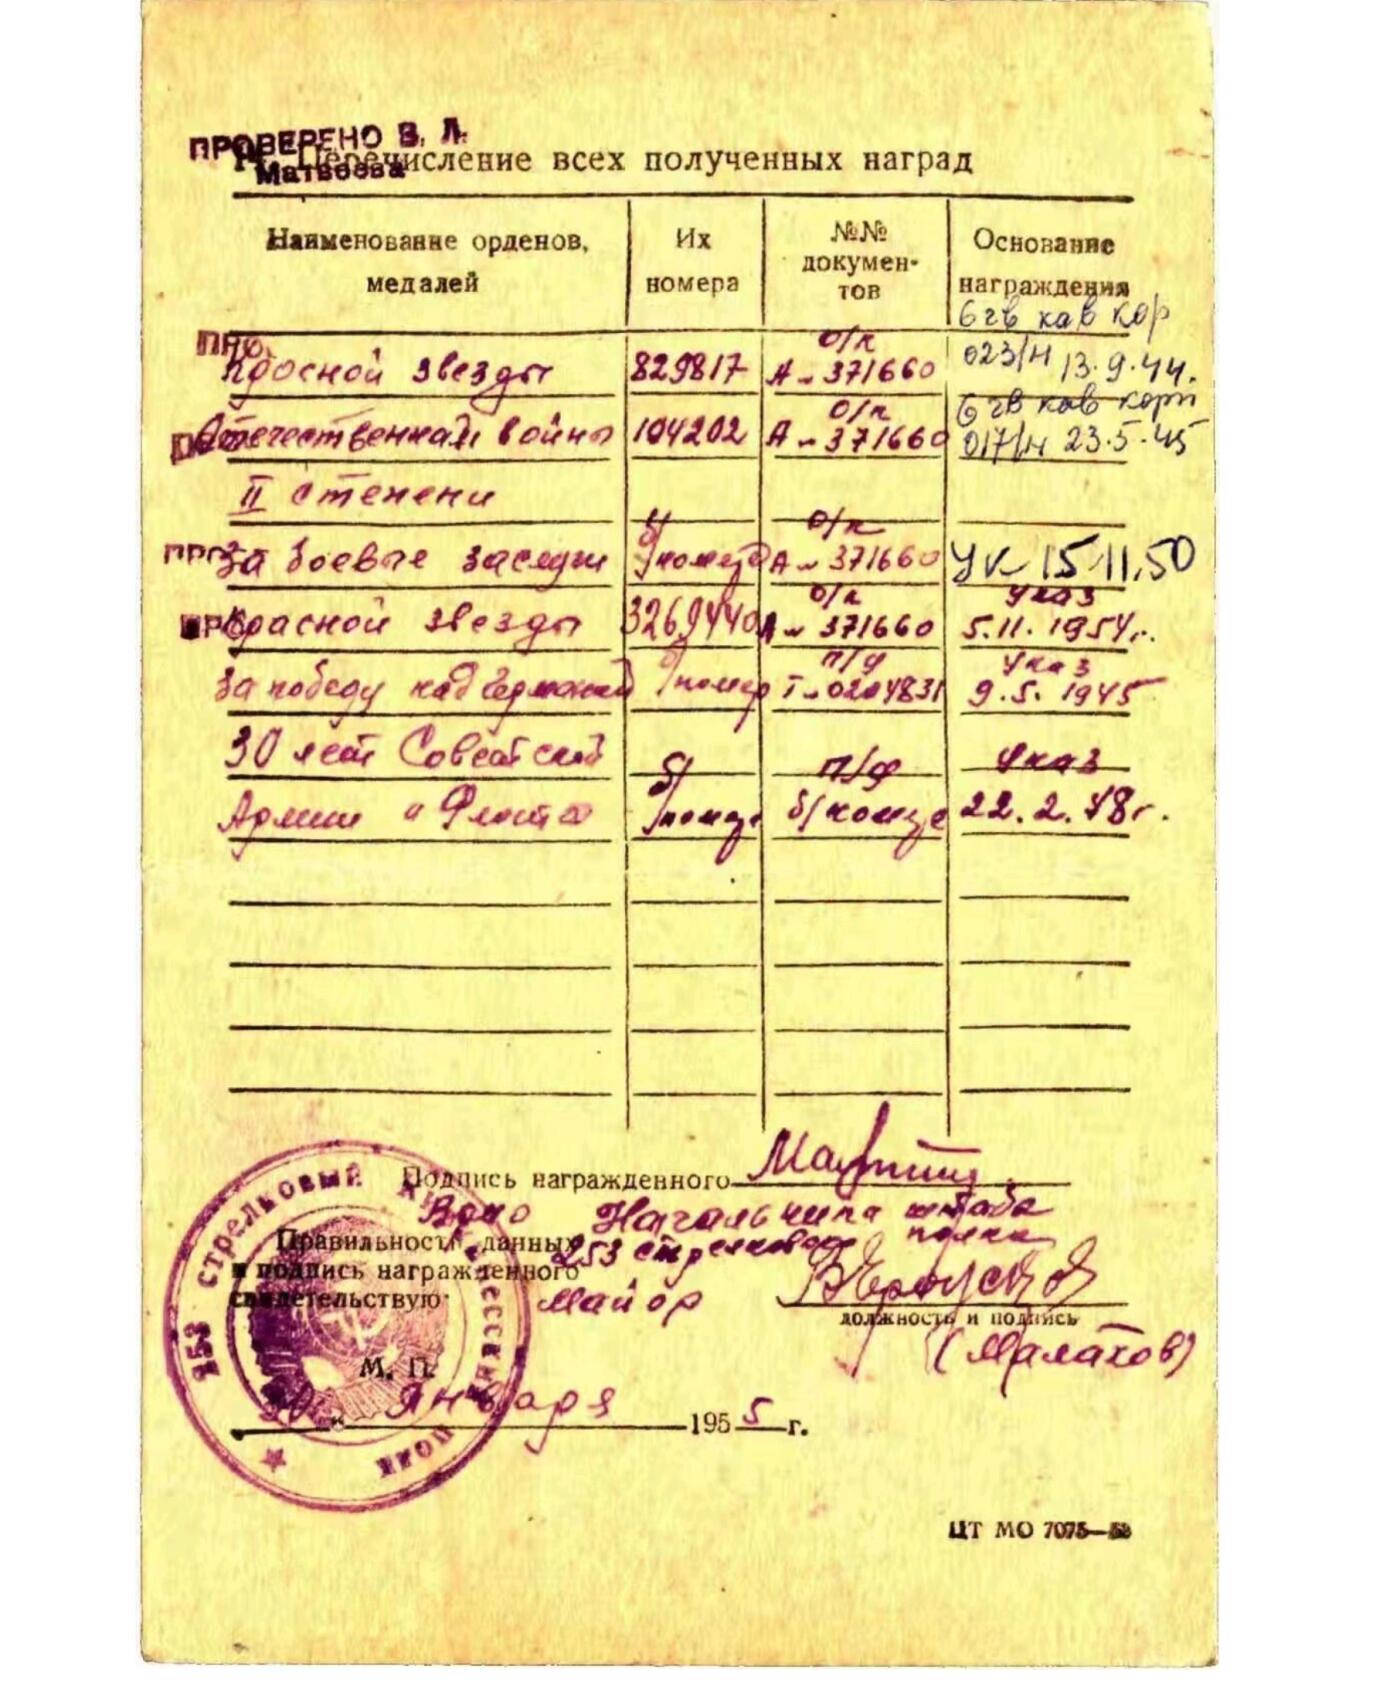 ПРОВЕРЕНО В. Л.
Матвеева
Перечисление всех полученных наград
Наименование орденов, медалей Их номера №№ документов Основание награждения
6 гв кав кор
ПРО. о/к
Красной звезды 829817 А-371660 023/н 13.9.44.
о/к 6 гв кав корп
Отечественной войны 104202 А-371660 017/н 23.5.45
II степени
б/ о/к
ПРО За боевые заслуги номера А-371660 УК 15.11.50
о/к Указ
ПРО Красной звезды 3269440 А-371660 5.11.1954г.
п/у Указ
За победу над Германией б/номер Т-0204831 9.5.1945
30 лет Советской б/ п/у Указ
Армии и Флота номера б/номера 22.2.48г.
Подпись награжденного
Врио Начальника штаба
Правильность данных 253 стрелкового полка
и подпись награжденного
свидетельствую: Майор
должность и подпись
(Малахов)
М. П.
30 " января 1955 г.
253 СТРЕЛКОВЫЙ ПОЛК
ЦТ МО 7075—53